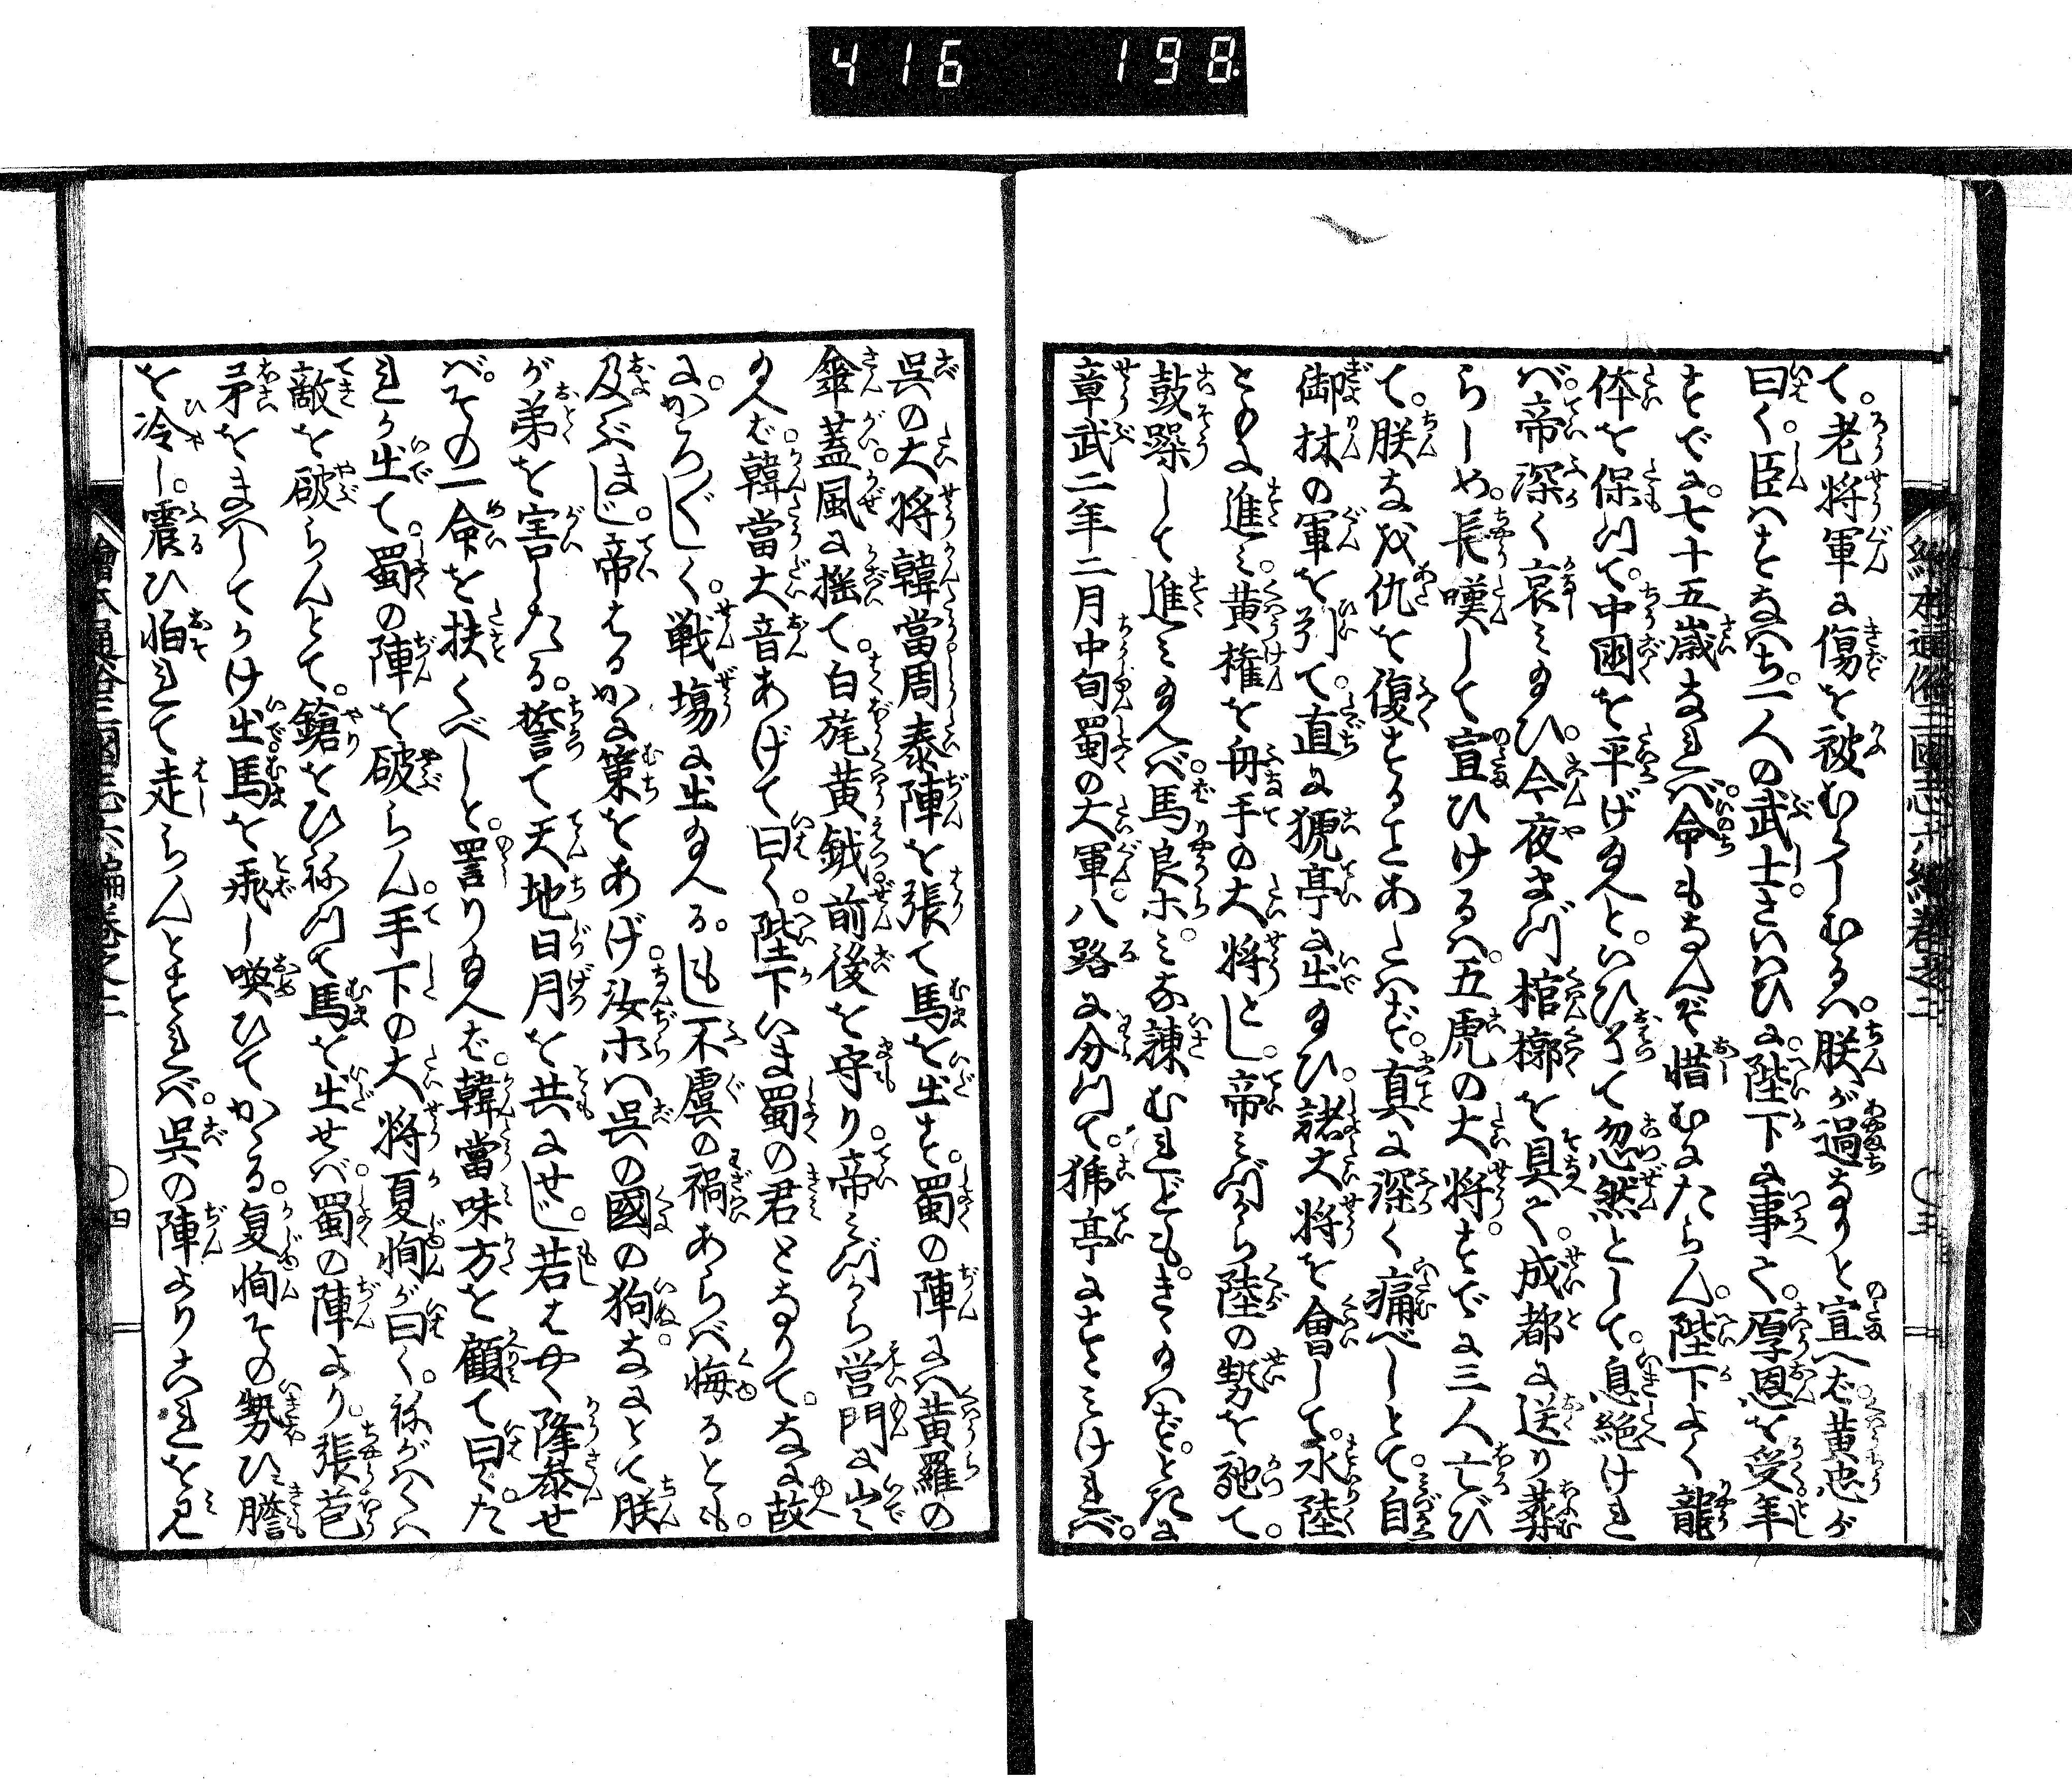 416 198
繪本通俗三國志六編卷之二 ○三
て。老将軍に傷を被むらしむるハ。朕が過なりと宣へバ。黄忠が
曰く。臣ハすなハち一人の武士さいハひに。陛下に事へ。厚恩を受年
すでに。七十五歳なれバ。命もなんぞ惜むにたらん。陛下よく龍
体を保ツて。中國を平げ給へと。いひ了て忽然として。息絶けれ
バ。帝深く哀ミ給ひ。今夜まづ棺槨を具へ。成都に送り葬
らしめ。長嘆して宣ひけるハ。五虎の大将。すでに三人亡び
て。朕なを仇を復することあたハず。真に深く痛べしとて。自
御林の軍を引て。直に猇亭に出給ひ。諸大将を會して。水陸
ともに進ミ。黄権を舟手の大将とし。帝ミづから陸の勢を馳て。
鼓躁して進ミ給へバ。馬良ホミな諫むれども。きゝ給ハず。とき
章武二年二月中旬蜀の大軍八路に分ツて。猇亭にすゝミけれバ。
呉の大将韓當周泰陣を張て馬を出す。蜀の陣にハ黄羅の
傘蓋風に揺て。白旄黄鉞。前後を守り。帝ミづから営門に出
給へバ。韓當大音あげて曰く。陛下いま蜀の君となりて。なに故
にかろ〴〵しく。戦場に出給へる。もし不虞の禍あらバ悔るとも。
及ぶまじ。帝はるかに策をあげ。汝ホハ呉の國の狗。なにとて朕
が弟を害したる。誓て天地日月を共にせじ。若はやく降参せ
バ。その一命を扶くべしと。詈り給へバ。韓當味方を顧て曰く。た
れか出て。蜀の陣を破らん。手下の大将夏恂が曰く。ねがハくハ
敵を破らんとて。鎗をひねツて馬を出せバ。蜀の陣より。張苞
矛をまハしてかけ出。馬を飛し喚ひてかゝる。夏恂その勢ひに膽
を冷し。震ひ怕れて走らんとすれバ。呉の陣よりこれを見
繪本通俗三國志六編卷之二 ○四